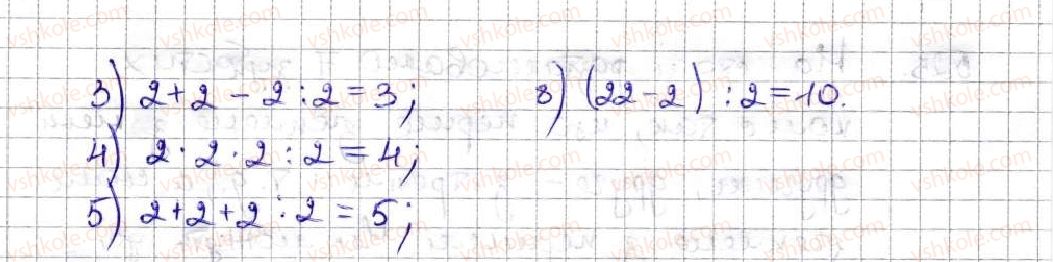 3) 2+2-2:2=3; 8) (22-2):2=10.
4) 2·2·2:2=4;
5) 2+2+2:2=5;